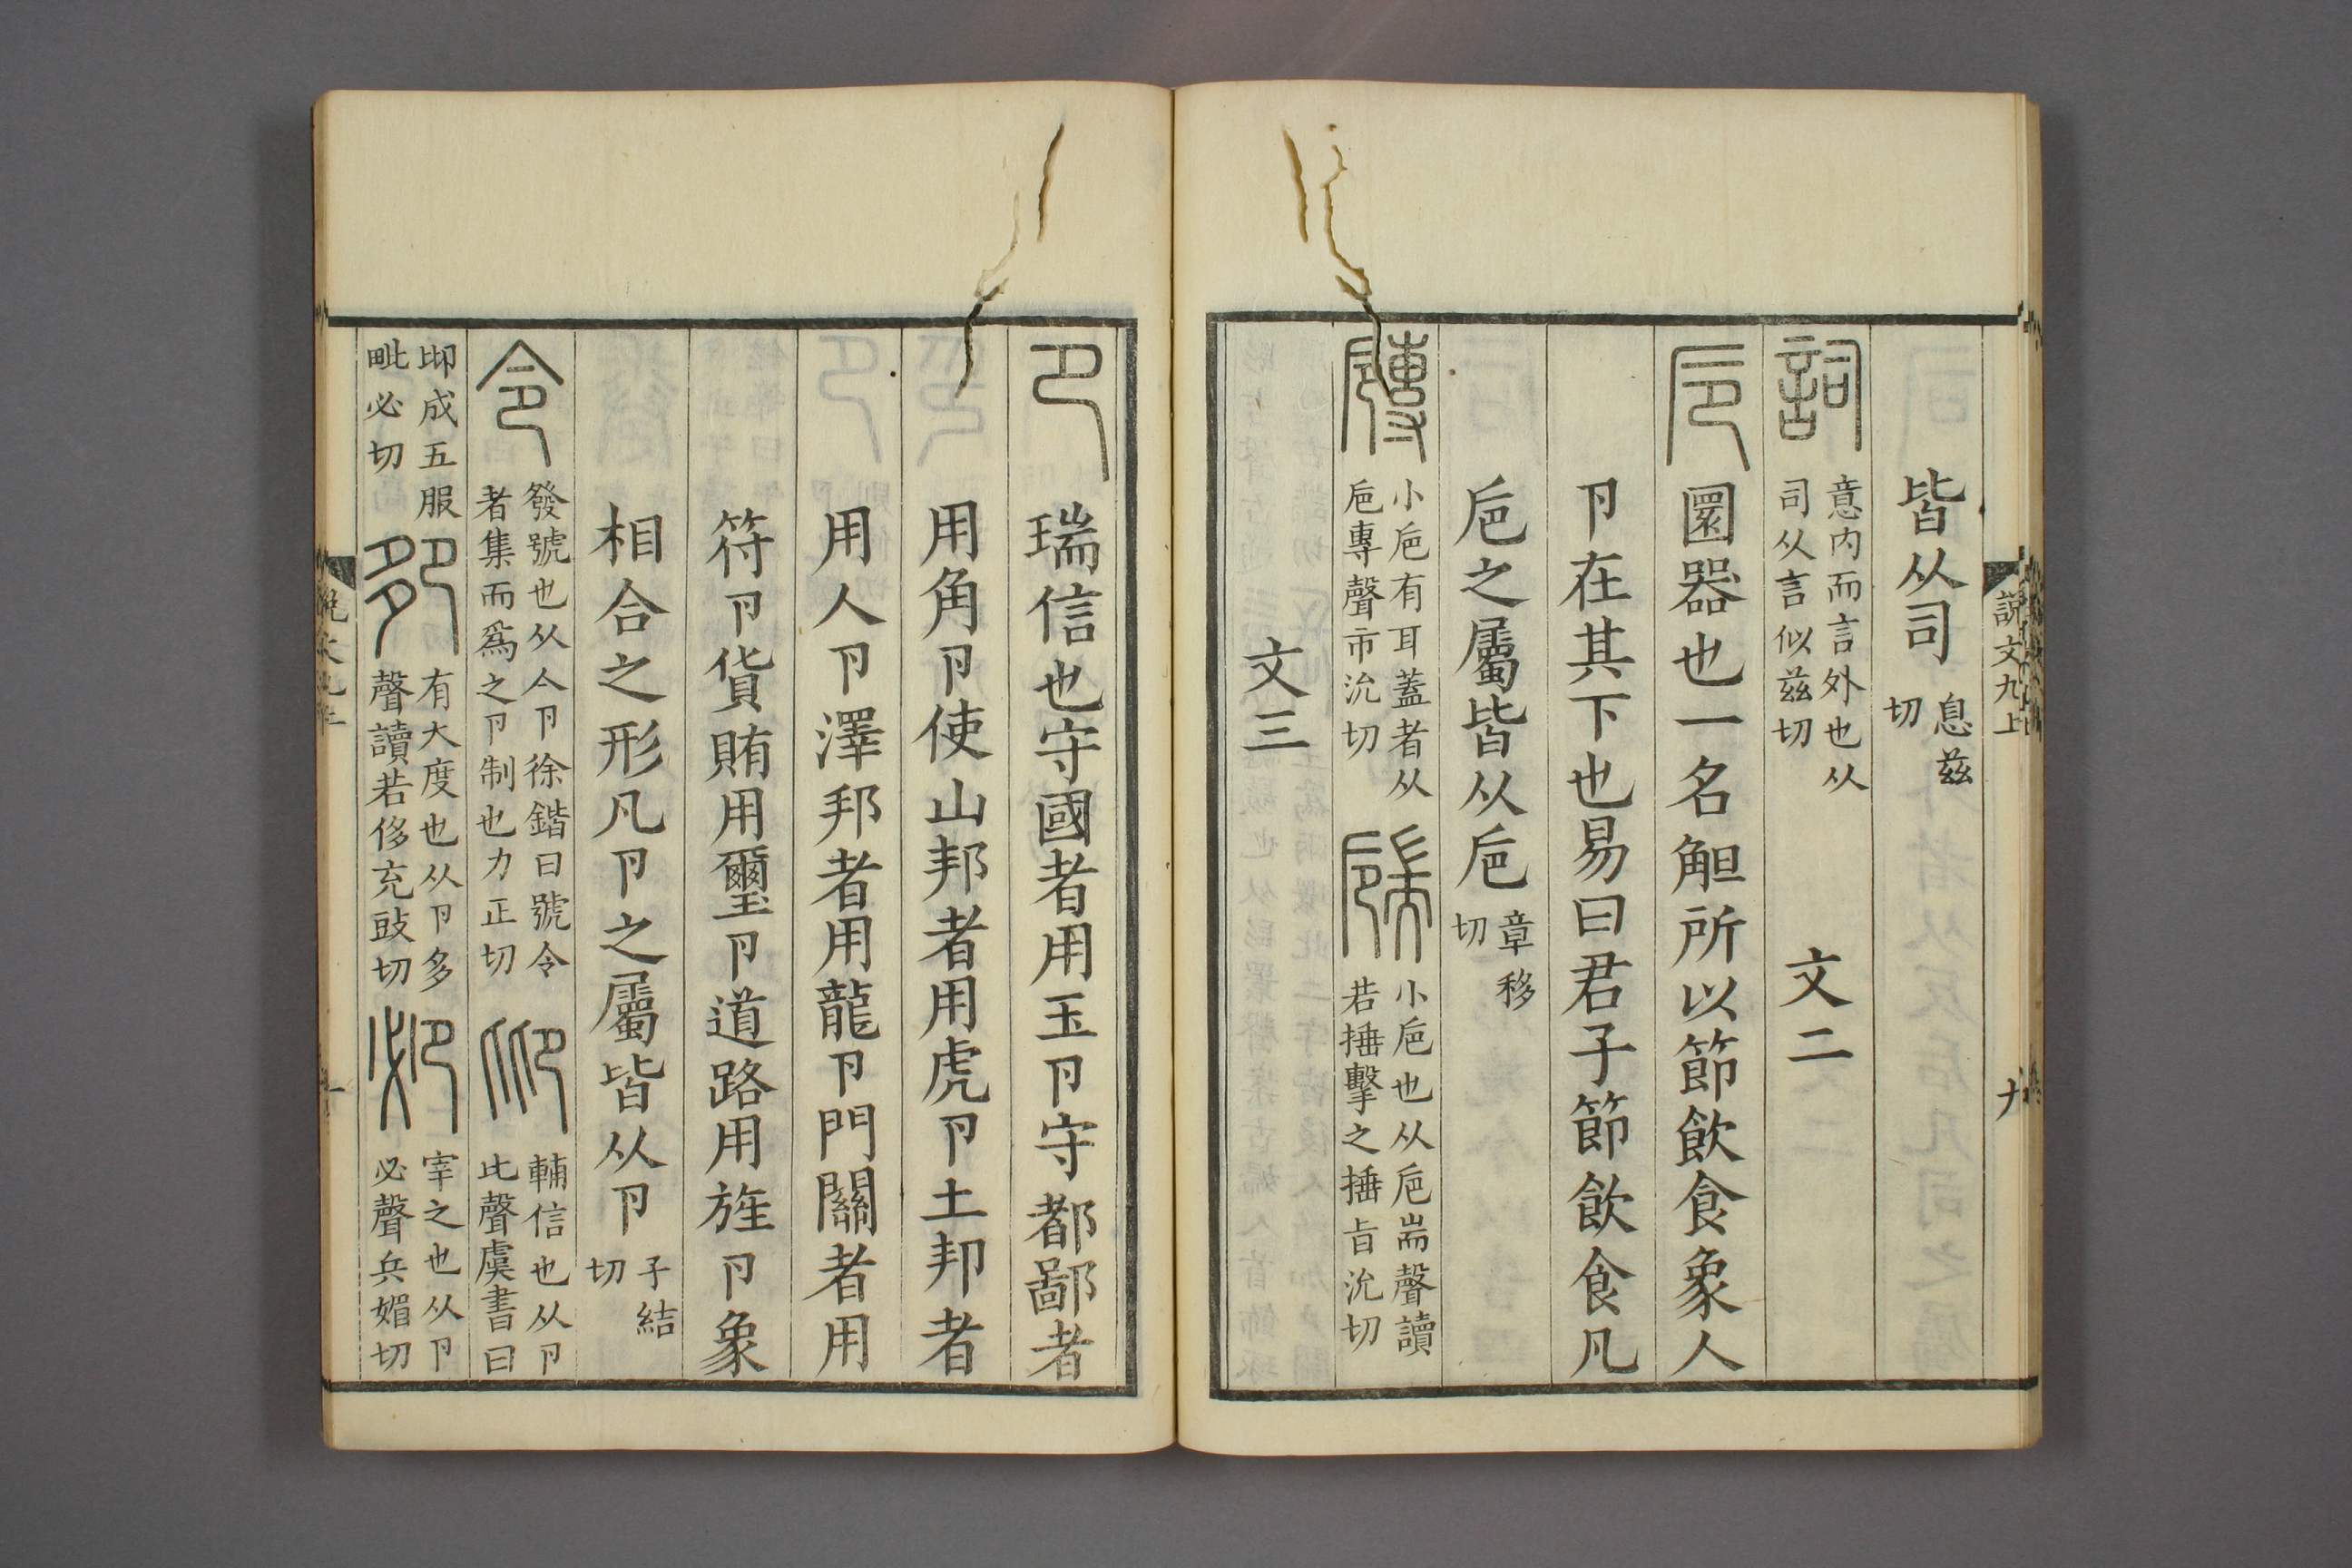 皆从司息兹切
詞意内而言外也从司从言似兹切 文二
卮圜器也一名觛所以節飲食象人
卪在其下也易曰君子節飲食凡
巵之屬皆从巵章移切
𡭐小巵有耳蓋者从巵專聲市沇切 𡰠小巵也从巵耑聲讀若捶擊之捶旨沇切
文三
說文九上
卪瑞信也守國者用玉卪守都鄙者
用角卪使山邦者用虎卪土邦者
用人卪澤邦者用龍卪門關者用
符卪貨賄用璽卪道路用旌卪象
相合之形凡卪之屬皆从卪子結切
令發號也从亼卪徐鍇曰號令者集而爲之卪制也力正切 𠨒輔信也从卪比聲虞書曰
𠨒成五服毗必切 𠨘有大度也从卪多聲讀若侈充豉切 𠨜宰之也从卪必聲兵媚切